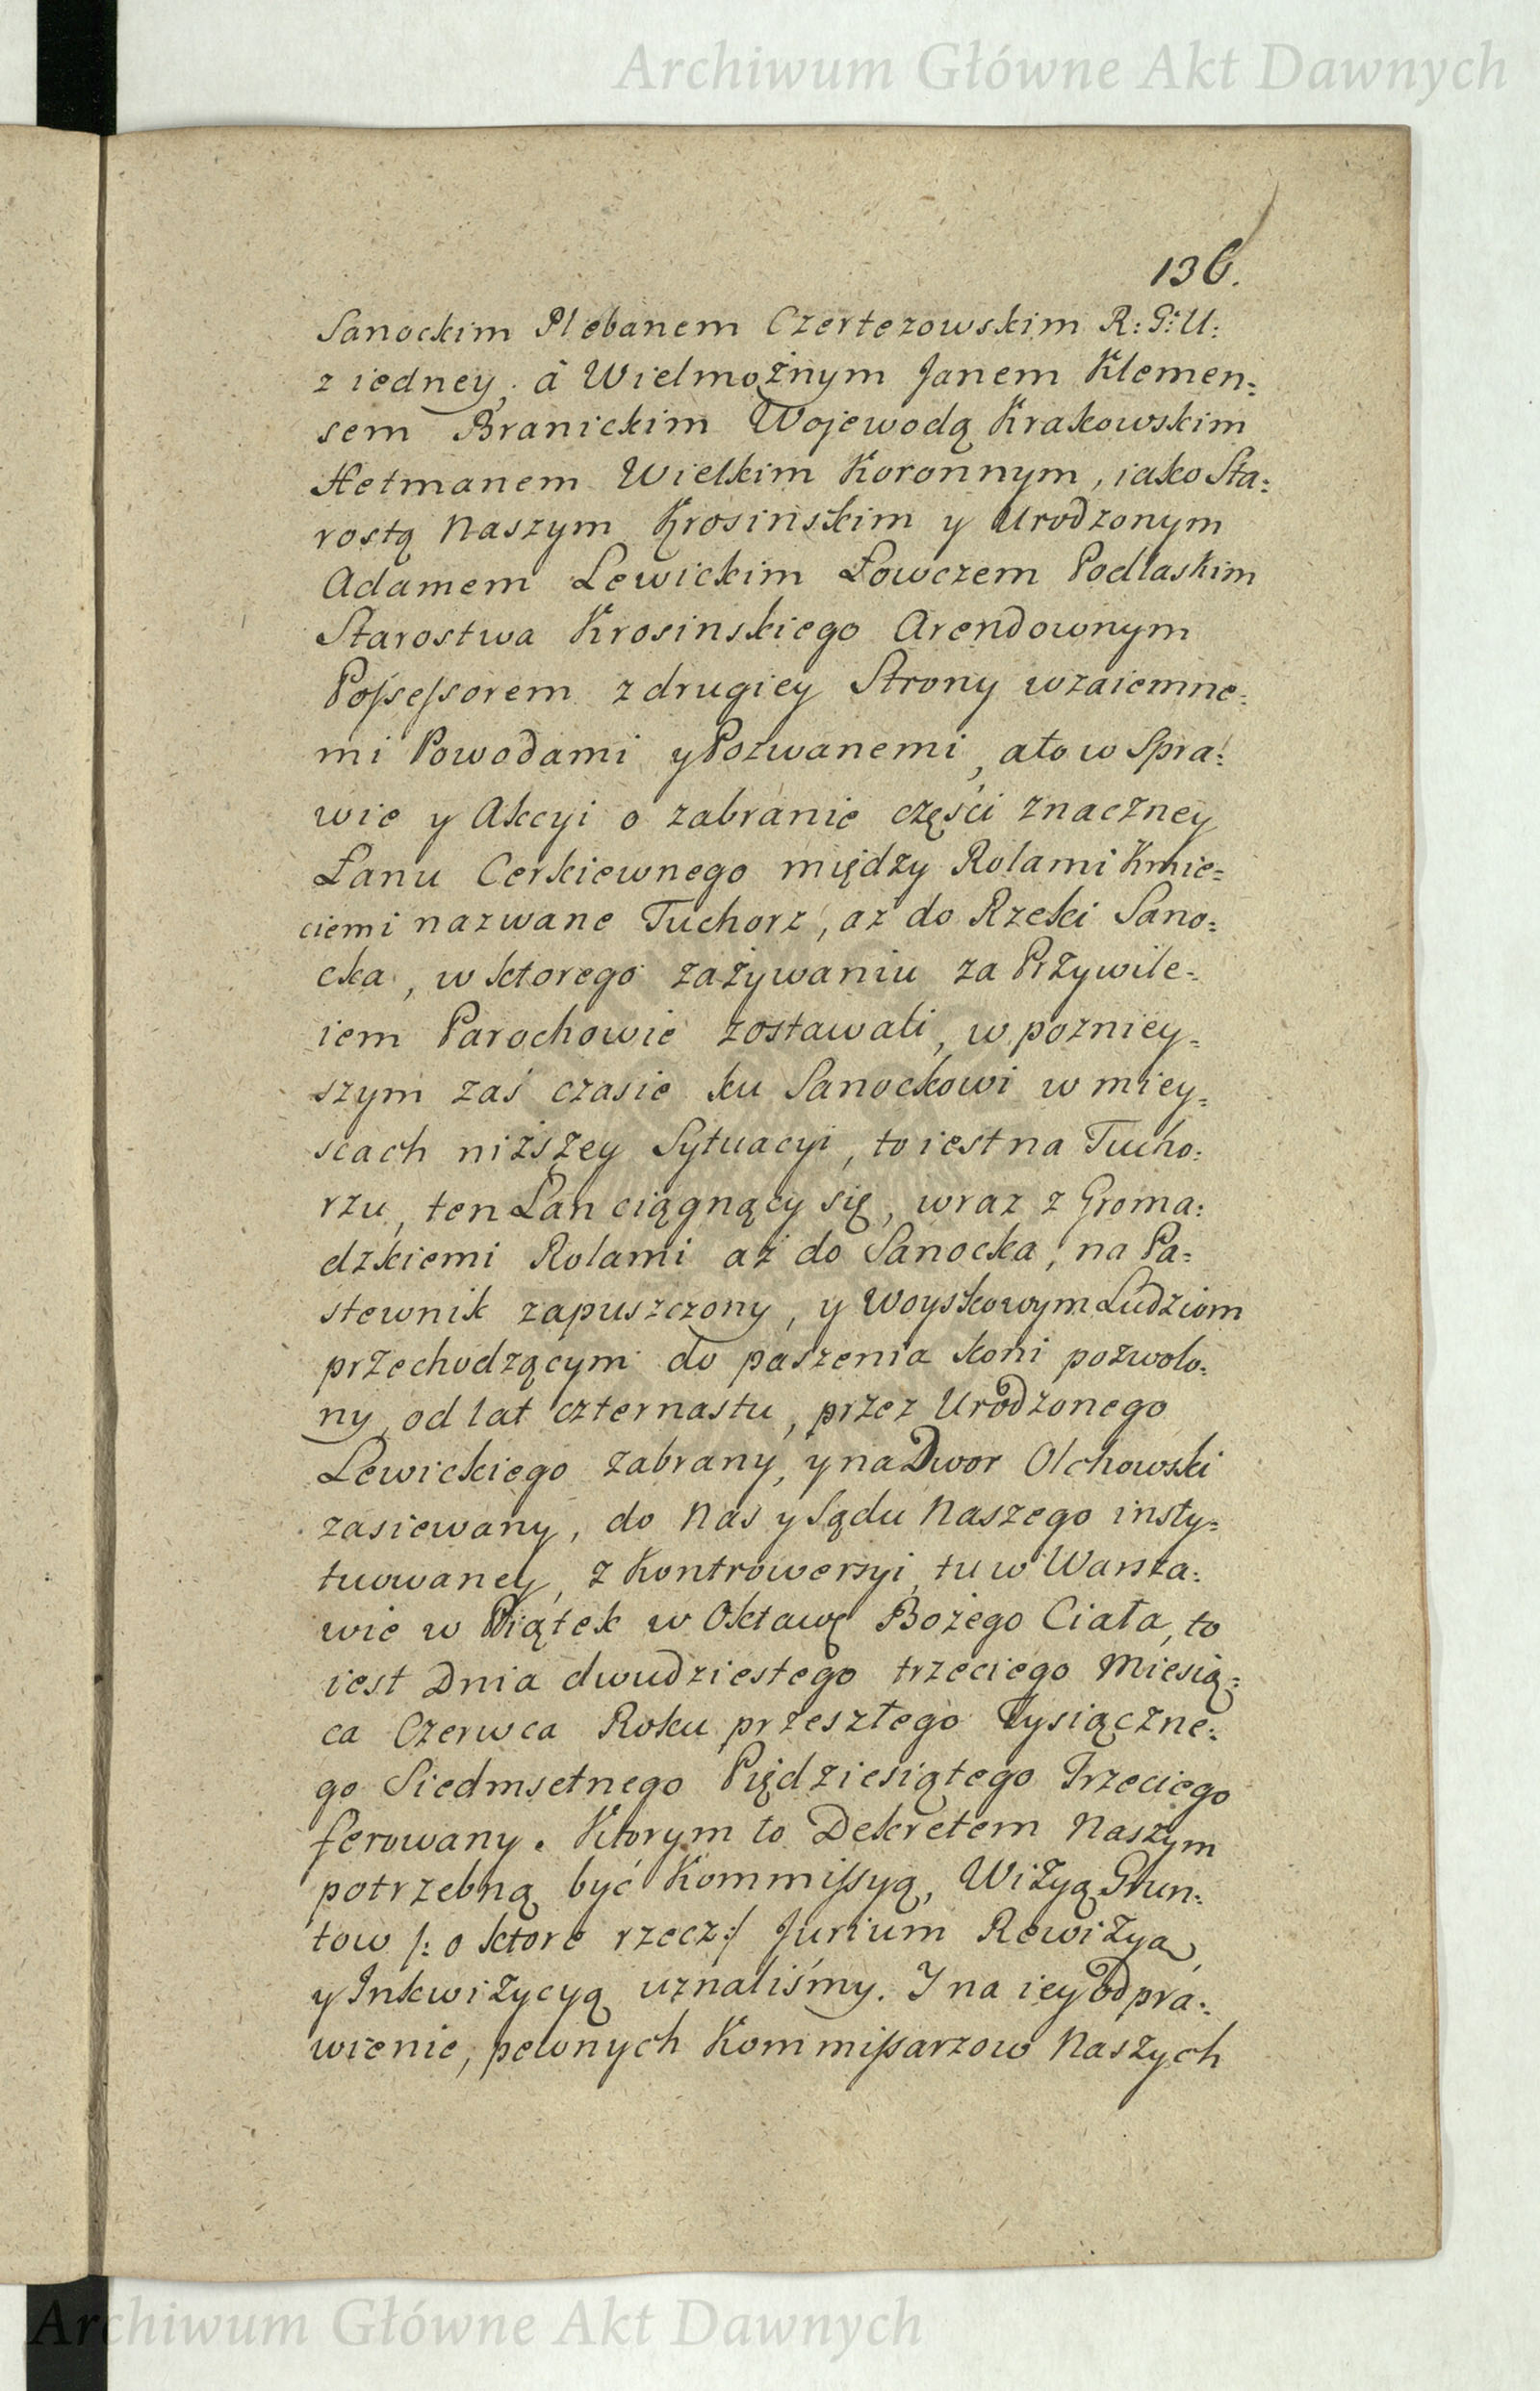 Archiwum Główne Akt Dawnych
136.
Sanockim Plebanem Czertezowskim R: G: U:
z iedney, á Wielmożnym Janem Klemen=
sem Branickim Wojewodą Krakowskim
Hetmanem Wielkim Koronnym, iako Sta=
rostą Naszym Krosinskim y Urodzonym
Adamem Lewickim Łowczem Podlaskim
Starostwa Krosinskiego Arendownym
Possessorem z drugiey Strony wzaiemne=
mi Powodami y Pozwanemi, ato w Spra=
wie y Akcyi o zabranie części znaczney
Łanu Cerkiewnego między Rolami Kmie=
ciemi nazwane Tuchorz, aż do Rzeki Sano=
cka, w ktorego zażywaniu za Przywile=
iem Parochowie zostawali, w poznieу=
szym zaś czasie ku Sanockowi w miey=
scach niższey Sytuacyi, to iest na Tucho=
rzu, ten Łan ciągnący się, wraz z Groma=
dzkiemi Rolami aż do Sanocka, na Pa=
stewnik zapuszczony, y Woyskowym Ludziom
przechodzącym do paszenia koni pozwolo=
ny, od lat czternastu, przez Urodzonego
Lewickiego zabrany, y na Dwor Olchowski
zasiewany, do Nas y Sądu Naszego insty=
tuowaney, z Kontrowersyi, tu w Warsza=
wie w Piątek w Oktawę Bożego Ciała, to
iest Dnia dwudziestego trzeciego Miesią=
ca Czerwca Roku przeszłego Tysiączne=
go Siedmsetnego Pięćdziesiątego Trzeciego
ferowany. Ktorym to Dekretem Naszym
potrzebną być Kommissyą, Wizyą Grun=
tow /: o ktore rzecz :/ Jurium Rewizyą,
y Inkwizycyą uznaliśmy. I na iey odpra=
wienie, pewnych Kommissarzow Naszych
Archiwum Główne Akt Dawnych